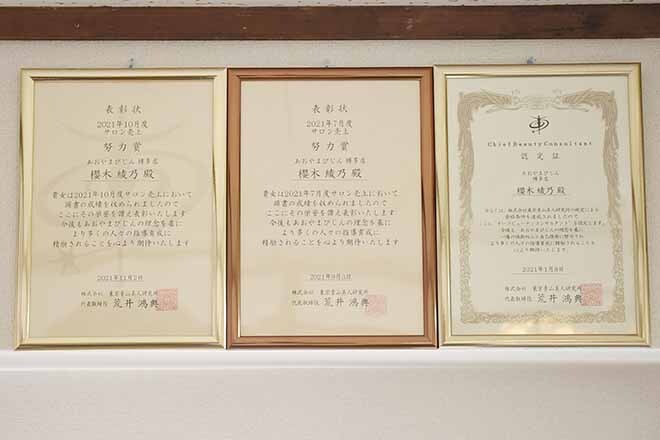 表彰状
2021年10月度
サロン売上
努力賞
あおやまびじん 博多店
櫻木 綾乃 殿
貴女は2021年10月度サロン売上において
頭書の成績を収められましたので
ここにその栄誉を讃え表彰いたします
今後もあおやまびじんの理念を基に
より多くの人々の指導育成に
精励されることを心より期待いたします
2021年11月2日
株式会社 東京青山美人研究所
代表取締役 荒井 鴻典
表彰状
2021年7月度
サロン売上
努力賞
あおやまびじん 博多店
櫻木 綾乃 殿
貴女は2021年7月度サロン売上において
頭書の成績を収められましたので
ここにその栄誉を讃え表彰いたします
今後もあおやまびじんの理念を基に
より多くの人々の指導育成に
精励されることを心より期待いたします
2021年9月3日
株式会社 東京青山美人研究所
代表取締役 荒井 鴻典
Chief Beauty Consultant
認定証
あおやまびじん
博多店
櫻木 綾乃 殿
今後も、あおやまびじんの理念を基に
より多くの人々の指導育成に精励されることを
心より期待いたします。
2021年1月8日
株式会社 東京青山美人研究所
代表取締役 荒井 鴻典